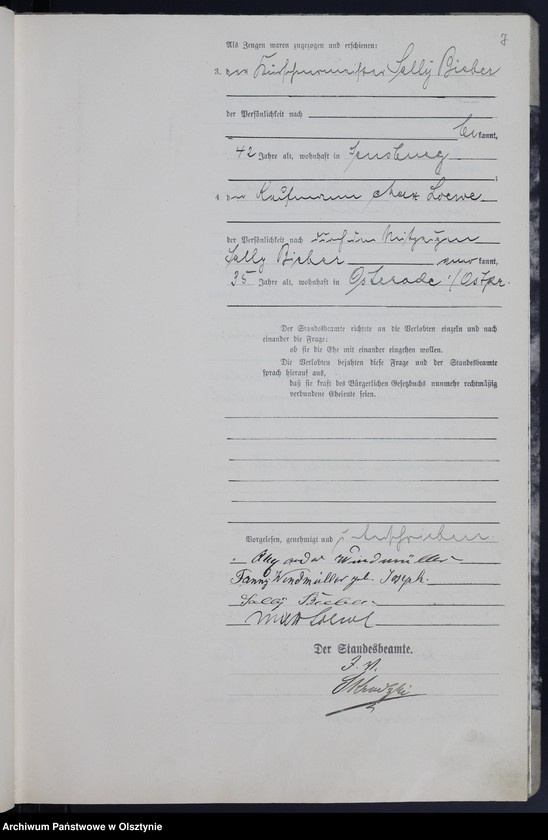 7
Als Zeugen waren zugezogen und erschienen:
3. der Kürschnermeister Sally Bieber
der Persönlichkeit nach
bekannt,
42 Jahre alt, wohnhaft in Sensburg
;
4. der Kaufmann Max Loewe
der Persönlichkeit nach durch den Mitzeugen
Sally Bieber anerkannt,
35 Jahre alt, wohnhaft in Osterode i/Ostpr.
Der Standesbeamte richtete an die Verlobten einzeln und nach
einander die Frage:
ob sie die Ehe mit einander eingehen wollen.
Die Verlobten bejahten diese Frage und der Standesbeamte
sprach hierauf aus,
daß sie kraft des Bürgerlichen Gesetzbuchs nunmehr rechtmäßig
verbundene Eheleute seien.
Vorgelesen, genehmigt und unterschrieben.
Alexander Windmüller
Fanny Windmüller geb. Joseph.
Sally Bieber
Max Loewe
Der Standesbeamte.
J. V.
Archiwum Państwowe w Olsztynie